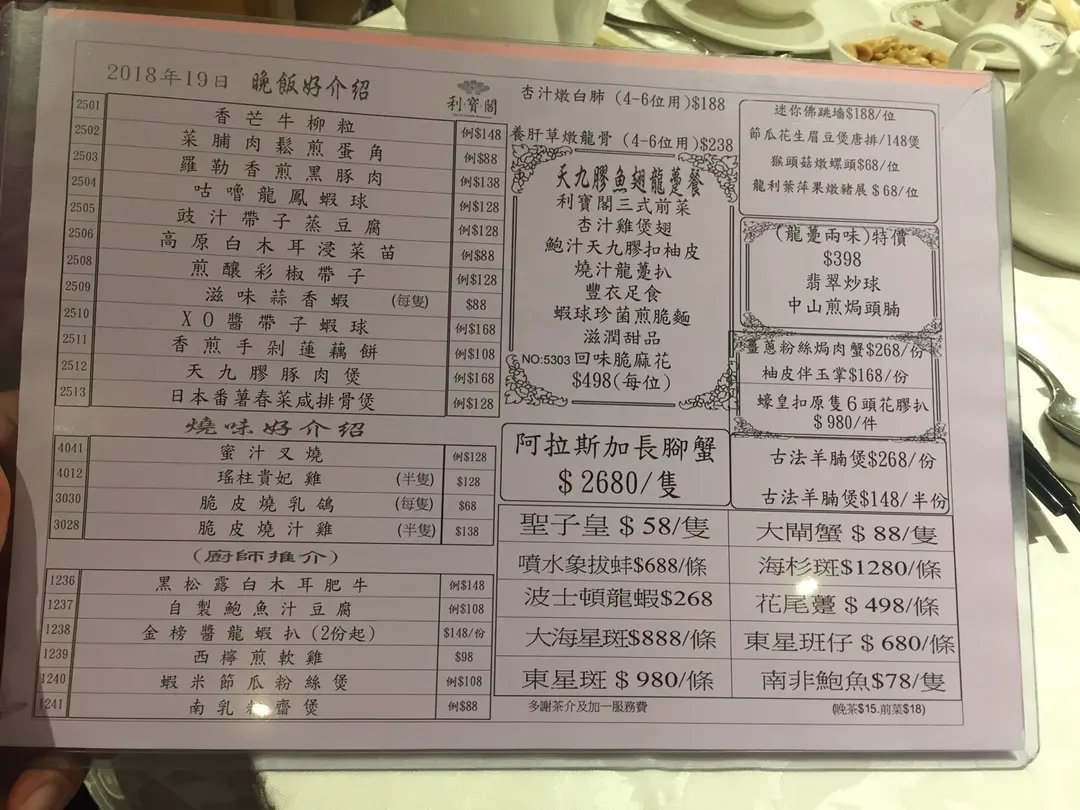 2018年19日 晚飯好介紹
利·寶·閣
2501 香芒牛柳粒 例$148
2502 菜脯肉鬆煎蛋角 例$88
2503 羅勒香煎黑豚肉 例$138
2504 咕嚕龍鳳蝦球 例$128
2505 豉汁帶子蒸豆腐 例$128
2506 高原白木耳浸菜苗 例$88
2508 煎釀彩椒帶子 例$128
2509 滋味蒜香蝦 (每隻) $88
2510 XO醬帶子蝦球 例$168
2511 香煎手剁蓮藕餅 例$108
2512 天九膠豚肉煲 例$168
2513 日本番薯春菜咸排骨煲 例$128
燒味好介紹
4041 蜜汁叉燒 例$128
4012 瑤柱貴妃雞 (半隻) $128
3030 脆皮燒乳鴿 (每隻) $68
3028 脆皮燒汁雞 (半隻) $138
(廚師推介)
1236 黑松露白木耳肥牛 例$148
1237 自製鮑魚汁豆腐 例$108
1238 金榜醬龍蝦扒(2份起) $148/份
1239 西檸煎軟雞 $98
1240 蝦米節瓜粉絲煲 例$108
1241 南乳粗齋煲 例$88
杏汁燉白肺 (4-6位用)$188
養肝草燉龍骨 (4-6位用)$238
天九膠魚翅龍躉餐
利寶閣三式前菜
杏汁雞煲翅
鮑汁天九膠扣柚皮
燒汁龍躉扒
豐衣足食
蝦球珍菌煎脆麵
滋潤甜品
NO:5303 回味脆麻花
$498(每位)
迷你佛跳墻$188/位
節瓜花生眉豆煲唐排/148煲
猴頭菇燉螺頭$68/位
龍利葉萍果燉豬展$68/位
(龍躉兩味)特價
$398
翡翠炒球
中山煎焗頭腩
薑蔥粉絲焗肉蟹$268/份
柚皮伴玉掌$168/份
蠔皇扣原隻6頭花膠扒
$980/件
古法羊腩煲$268/份
古法羊腩煲$148/半份
阿拉斯加長腳蟹
$2680/隻
聖子皇$58/隻 大閘蟹$88/隻
噴水象拔蚌$688/條 海杉斑$1280/條
波士頓龍蝦$268 花尾躉$498/條
大海星斑$888/條 東星班仔$680/條
東星斑$980/條 南非鮑魚$78/隻
多謝茶介及加一服務費 (晚茶$15.前菜$18)